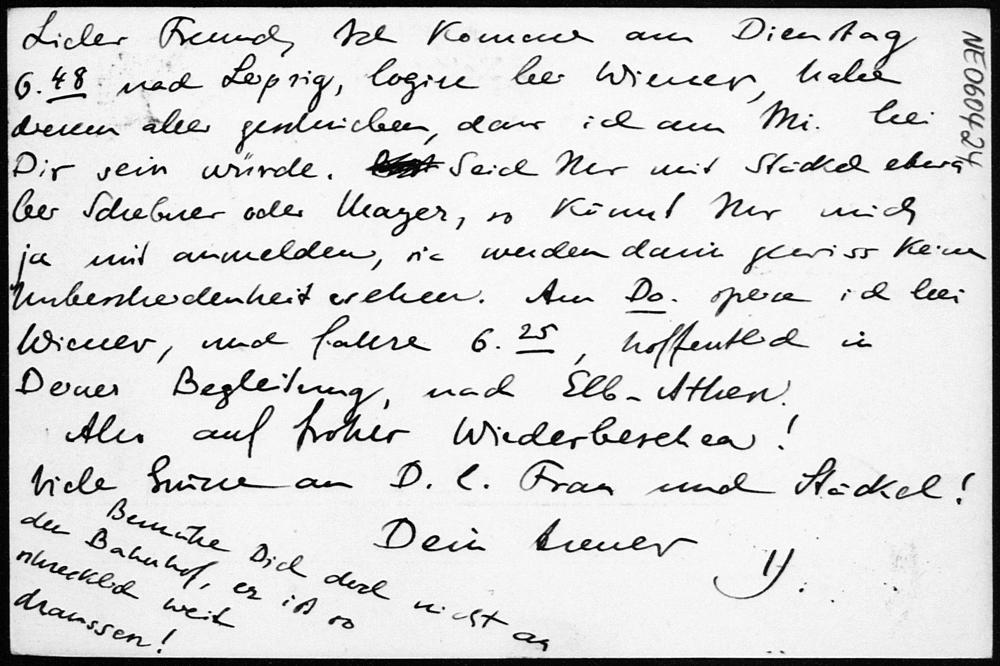 Lieber Freund, Ich komme am Dienstag
6.48 nach Leipzig, logire bei Wiener, habe
diesem aber geschrieben, dass ich am Mi. bei
Dir sein würde. Seid Ihr mit Stäckel etwa
bei Scheibner oder Mayer, so könnt Ihr mich
ja mit anmelden, sie werden darin gewiss keine
Unbescheidenheit sehen. Am Do. speise ich bei
Wiener, und fahre 6.25, hoffentlich in
Deiner Begleitung, nach Elb-Athen.
Also auf frohes Wiedersehen!
Viele Grüsse an D. l. Frau und Stäckel!
Dein treuer
Bemühe Dich doch nicht an
den Bahnhof, er ist so
schrecklich weit
draussen!
NE060424